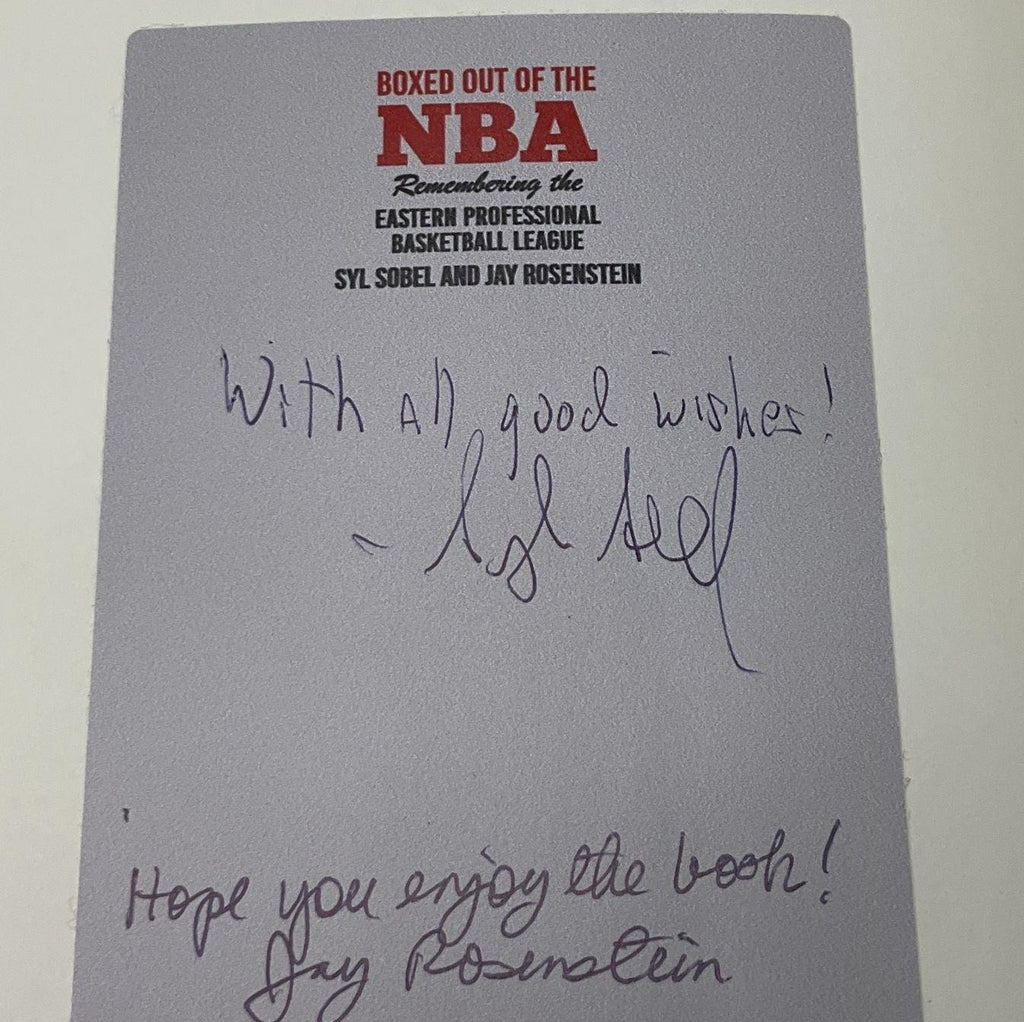 BOXED OUT OF THE
NBA
Remembering the
EASTERN PROFESSIONAL
BASKETBALL LEAGUE
SYL SOBEL AND JAY ROSENSTEIN
With All good wishes!
- Syl Sobel
Hope you enjoy the book!
Jay Rosenstein